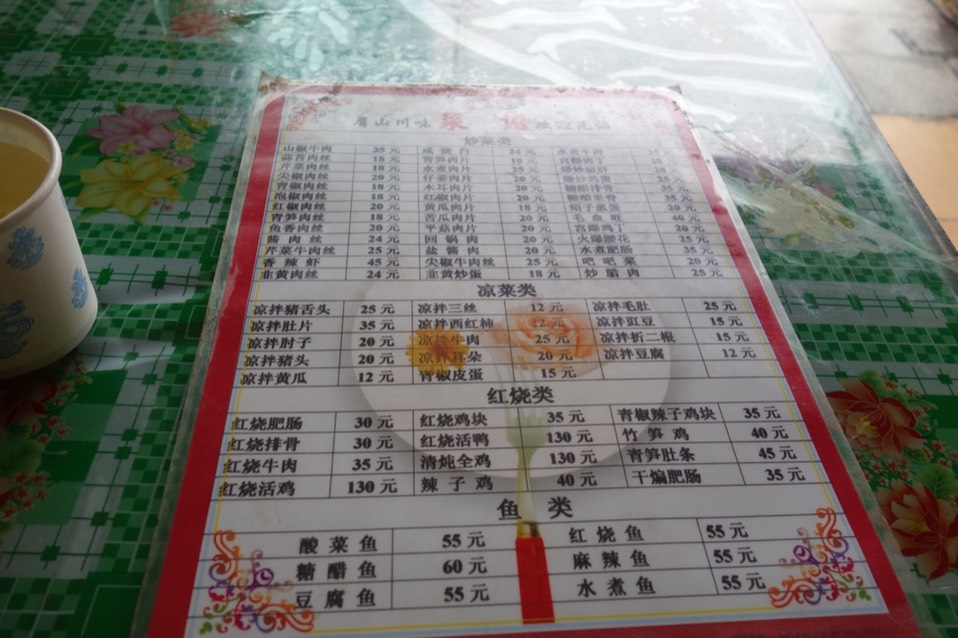 眉山川味 聚 欢迎光临
炒菜类
山椒牛肉 35元
蒜苔肉丝 18元 青笋肉片 18元
芹菜肉丝 18元 水煮肉片 25元
尖椒肉丝 20元 仔姜肉片 20元
青椒肉丝 18元 木耳肉片 20元 糖醋排骨 35元
泡椒肉丝 18元 红椒肉片
红椒肉丝 20元 苦瓜肉片
青笋肉丝 18元 苦瓜肉片 毛血旺 40元
鱼香肉丝 20元 平菇肉片 20元 宫爆鸭丁
酱肉丝 24元 回锅肉 20元 火爆腰花 25元
芹菜牛肉丝 25元 盐酱肉 20元 水煮肥肠 35元
香辣虾 45元 尖椒牛肉丝 25元 吧吧菜 20元
韭黄肉丝 24元 韭黄炒蛋 18元 炒腊肉 25元
凉菜类
凉拌猪舌头 25元 凉拌三丝 12元 凉拌毛肚 25元
凉拌肚片 35元 凉拌西红柿 12元 凉拌豇豆 15元
凉拌肘子 20元 凉拌牛肉 25元 凉拌折二根 15元
凉拌猪头 20元 凉拌耳朵 20元 凉拌豆腐 12元
凉拌黄瓜 12元 青椒皮蛋 15元
红烧类
红烧肥肠 30元 红烧鸡块 35元 青椒辣子鸡块 35元
红烧排骨 30元 红烧活鸭 130元 竹笋鸡 40元
红烧牛肉 35元 清炖全鸡 130元 青笋肚条 45元
红烧活鸡 130元 辣子鸡 40元 干煸肥肠 35元
鱼类
酸菜鱼 55元 红烧鱼 55元
糖醋鱼 60元 麻辣鱼 55元
豆腐鱼 55元 水煮鱼 55元